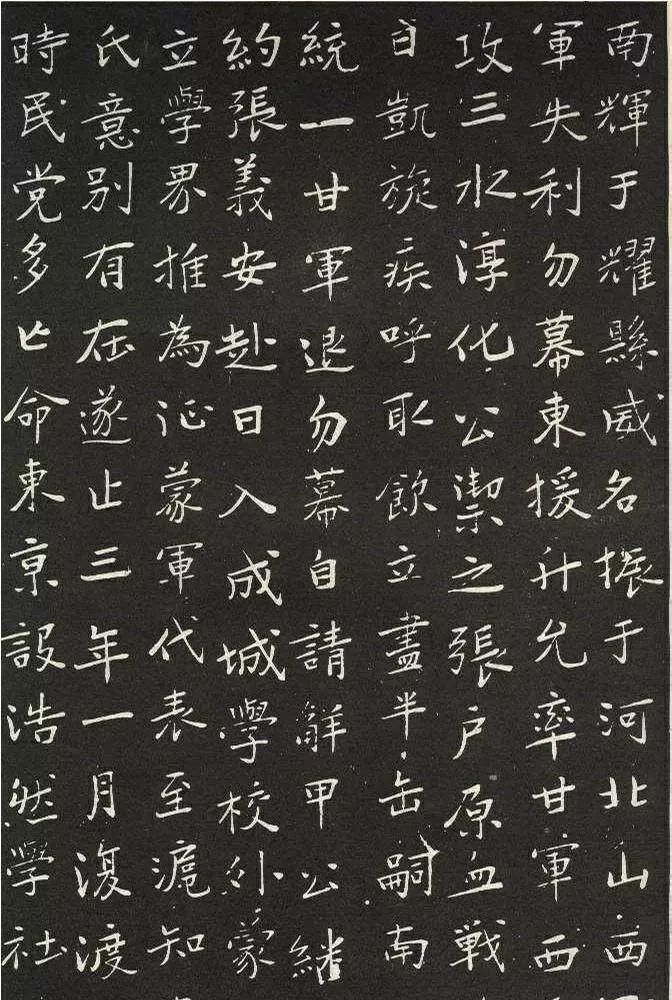 輝于耀縣威名振于河北山西
軍失利勿幕東援升允率甘軍西
攻三水淳化公禦之張户原血戰
日凱旋疾呼取飲立盡半缶嗣南
統一甘軍退勿幕自請解甲公繼
約張義安赴日入成城學校外蒙
立學界推為征蒙軍代表至滬知
氏意别有在遂止三年一月復渡
時民党多亡命東京設浩然學社